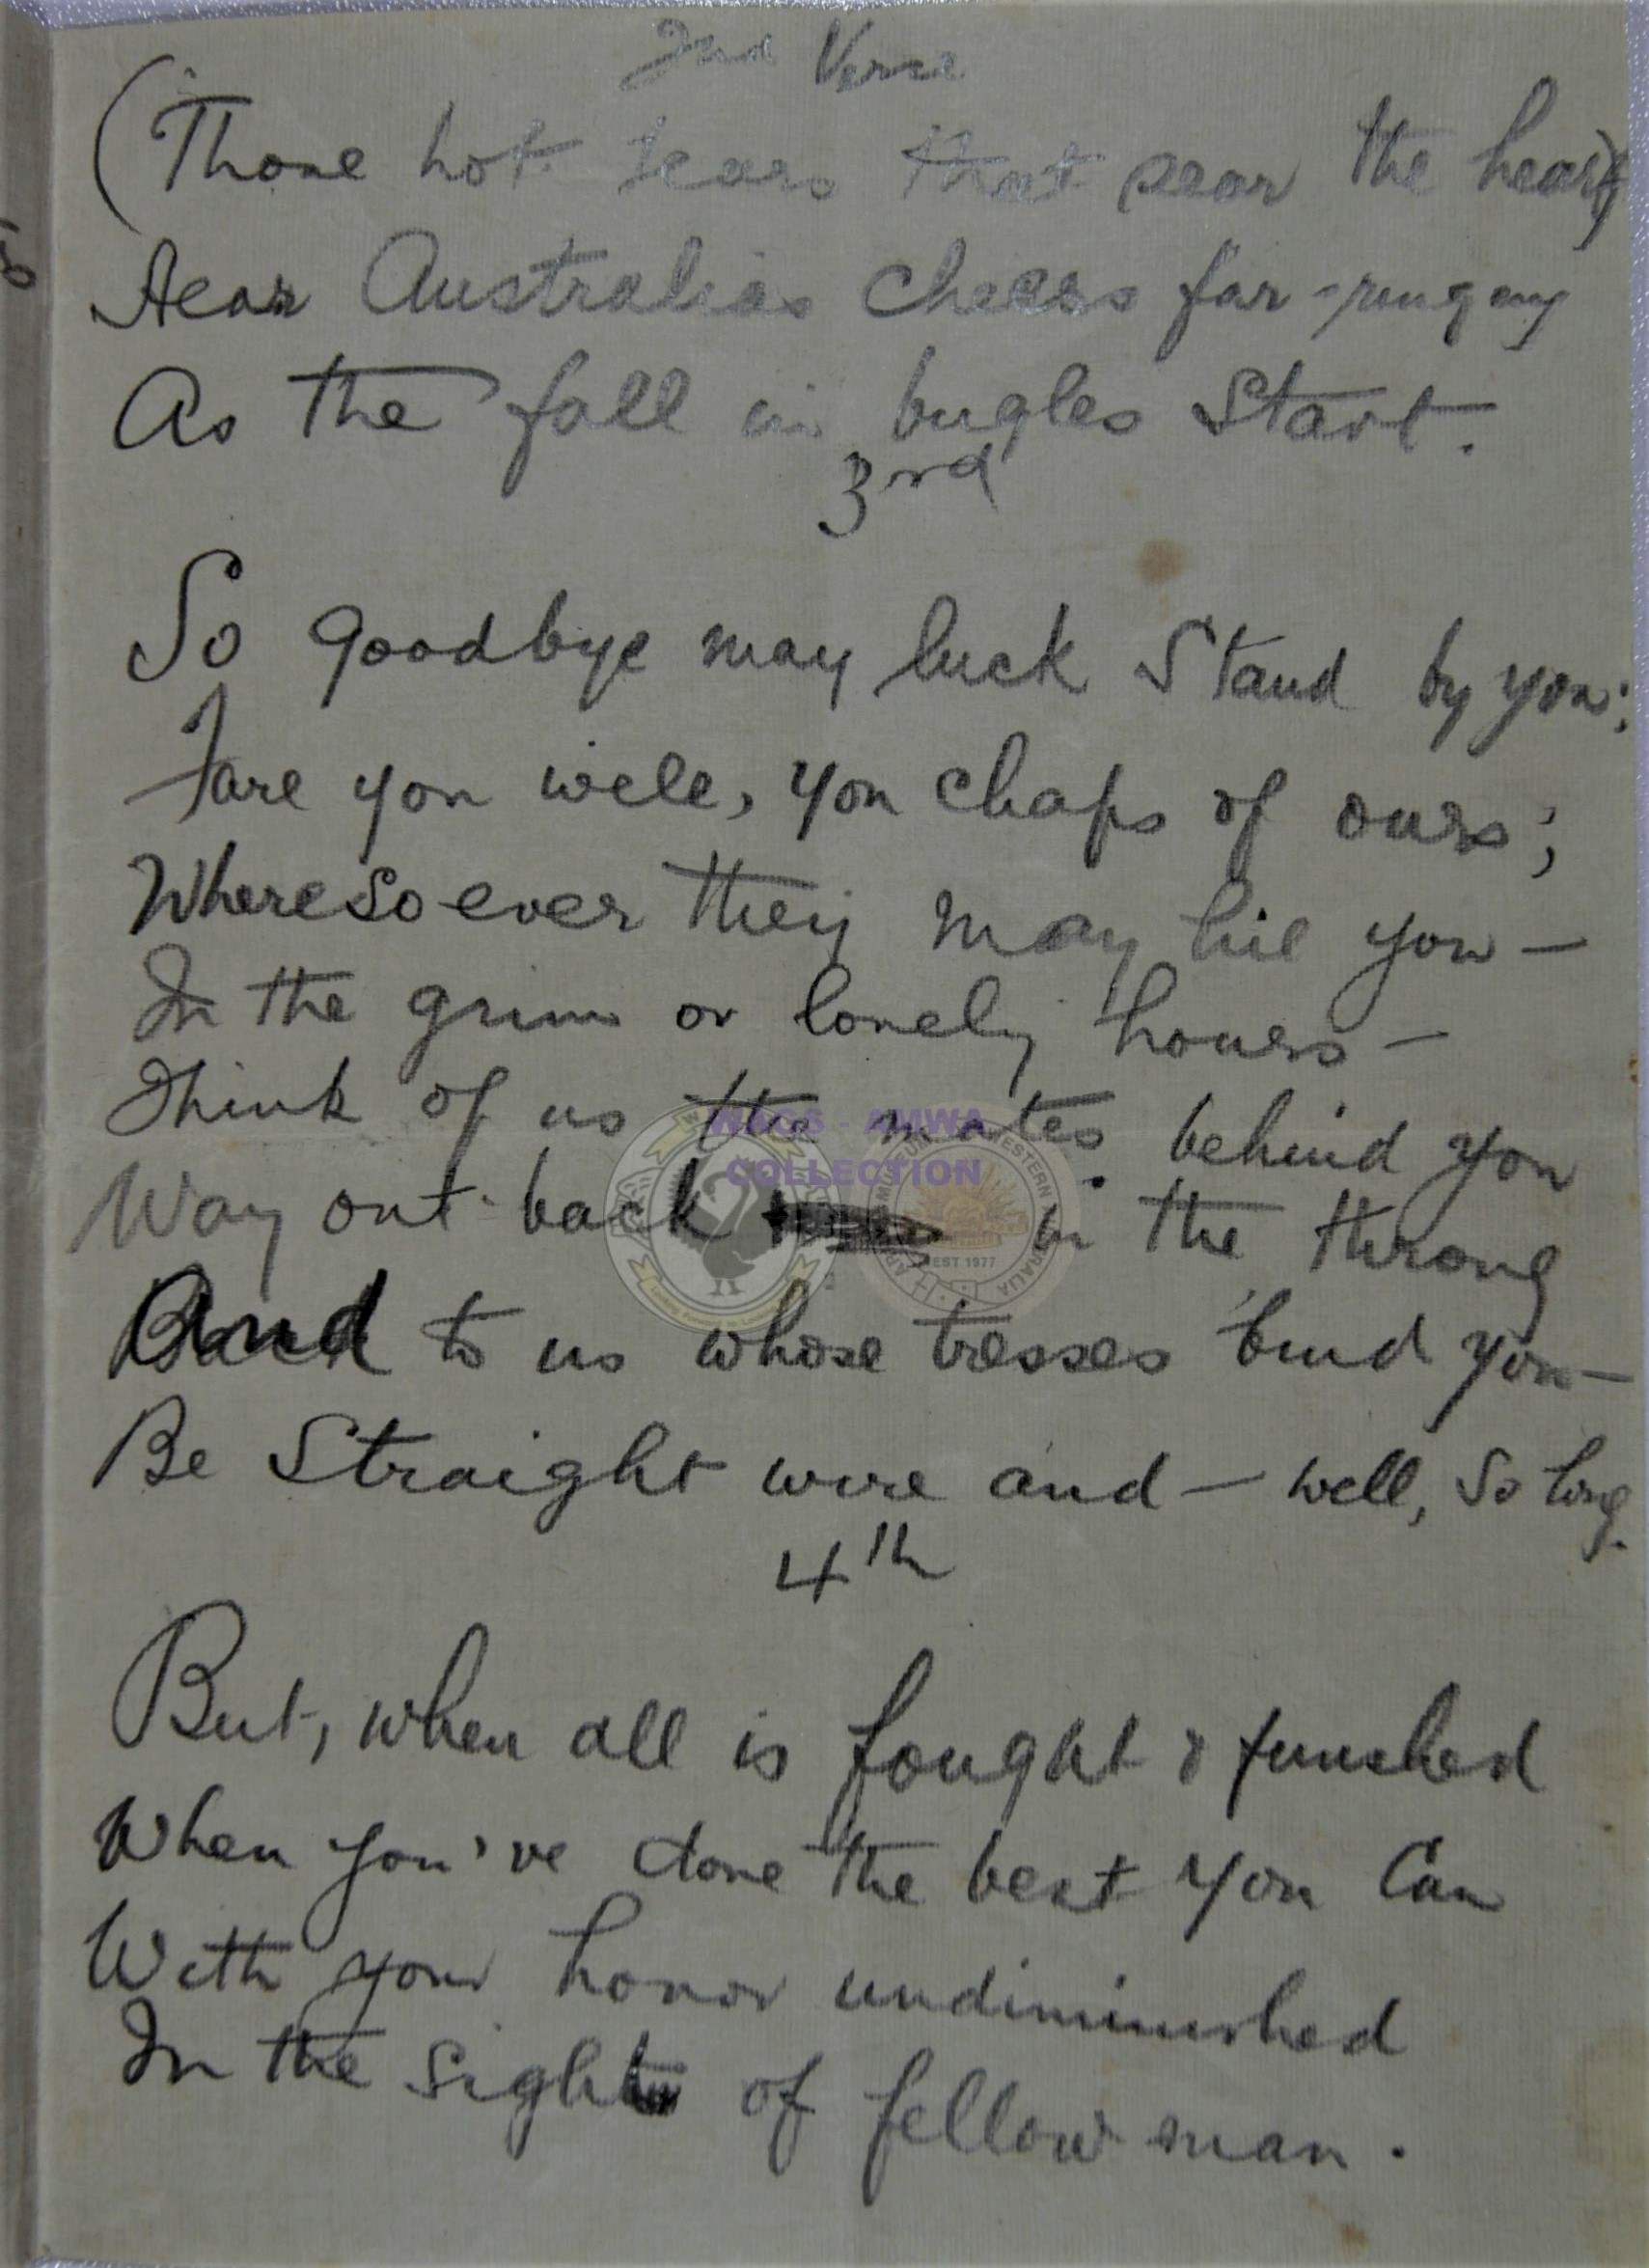 2nd Verse
(Those hot tears that sear the heart)
Hear Australias cheers far-ringing
As the fall in bugles start.
3rd
So goodbye may luck stand by you;
Fare you well, you chaps of ours;
Wheresoever they may hie you —
In the grim or lonely hours —
Think of us the mates behind you
Way out back in the throng
And to us whose tresses bind you —
Be Straight wire and — well, so long.
4th
But, when all is fought & finished
When you've done the best you can
With your honor undiminished
In the sight of fellow man.
WAGS - AMWA
COLLECTION
EST 1977